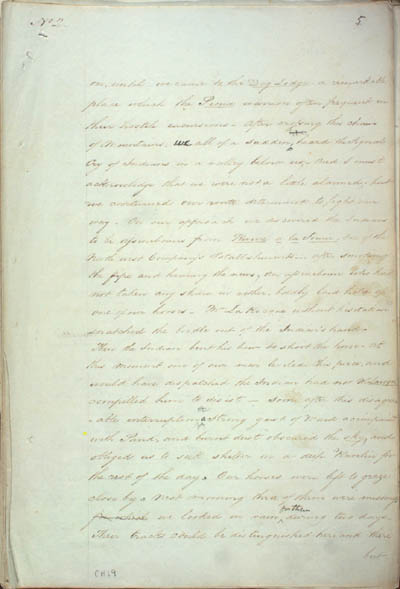 No. 2.
5
on, until we came to the Dog Lodge a remarkable
place which the Sioux warriors often frequent in
their hostile excursions. After crossing this chain
of Mountains, we all of a sudden heard the signal
Cry of Indians in a valley below us, and I must
acknowledge that we were not a little alarmed, but
we continued our route determined to fight our
way. On our approach we discovered the Indians
to be Assiniboines from Rivière a la Souris, one of the
North west Company's Establishments. After smoking
the pipe and hearing the news, an Assiniboine who had
not taken any share in either, boldly laid hold of
one of our horses. Mr. LaRocque without hesitation
snatched the bridle out of the Indian's hand.
Then the Indian bent his bow to shoot the horse. At
this moment one of our men levelled his piece, and
would have dispatched the Indian had not Mr. Larocque
compelled him to desist. Soon after this disagree
able interruption a strong gust of Wind accompanied
with Sand, and burnt dust obscured the sky, and
obliged us to seek shelter in a deep Ravine for
the rest of the day. Our horses were left to graze
close by. Next morning three of them were missing
we looked in vain for them during two days
Their tracks could be distinguished here and there
but
CH19